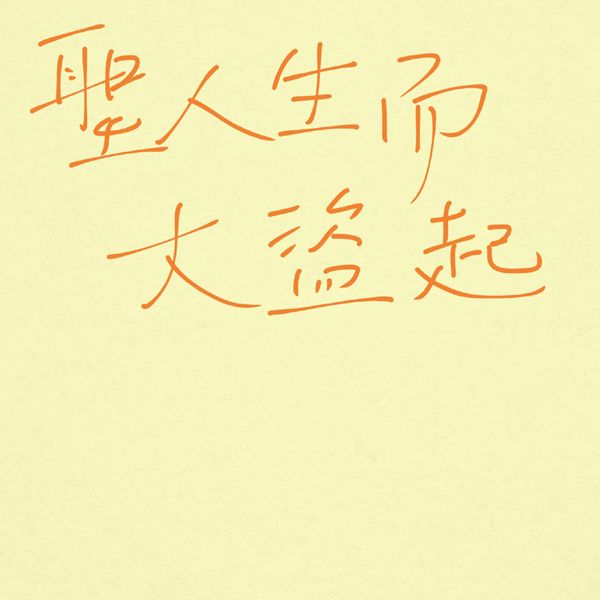 聖人生而
大盜起